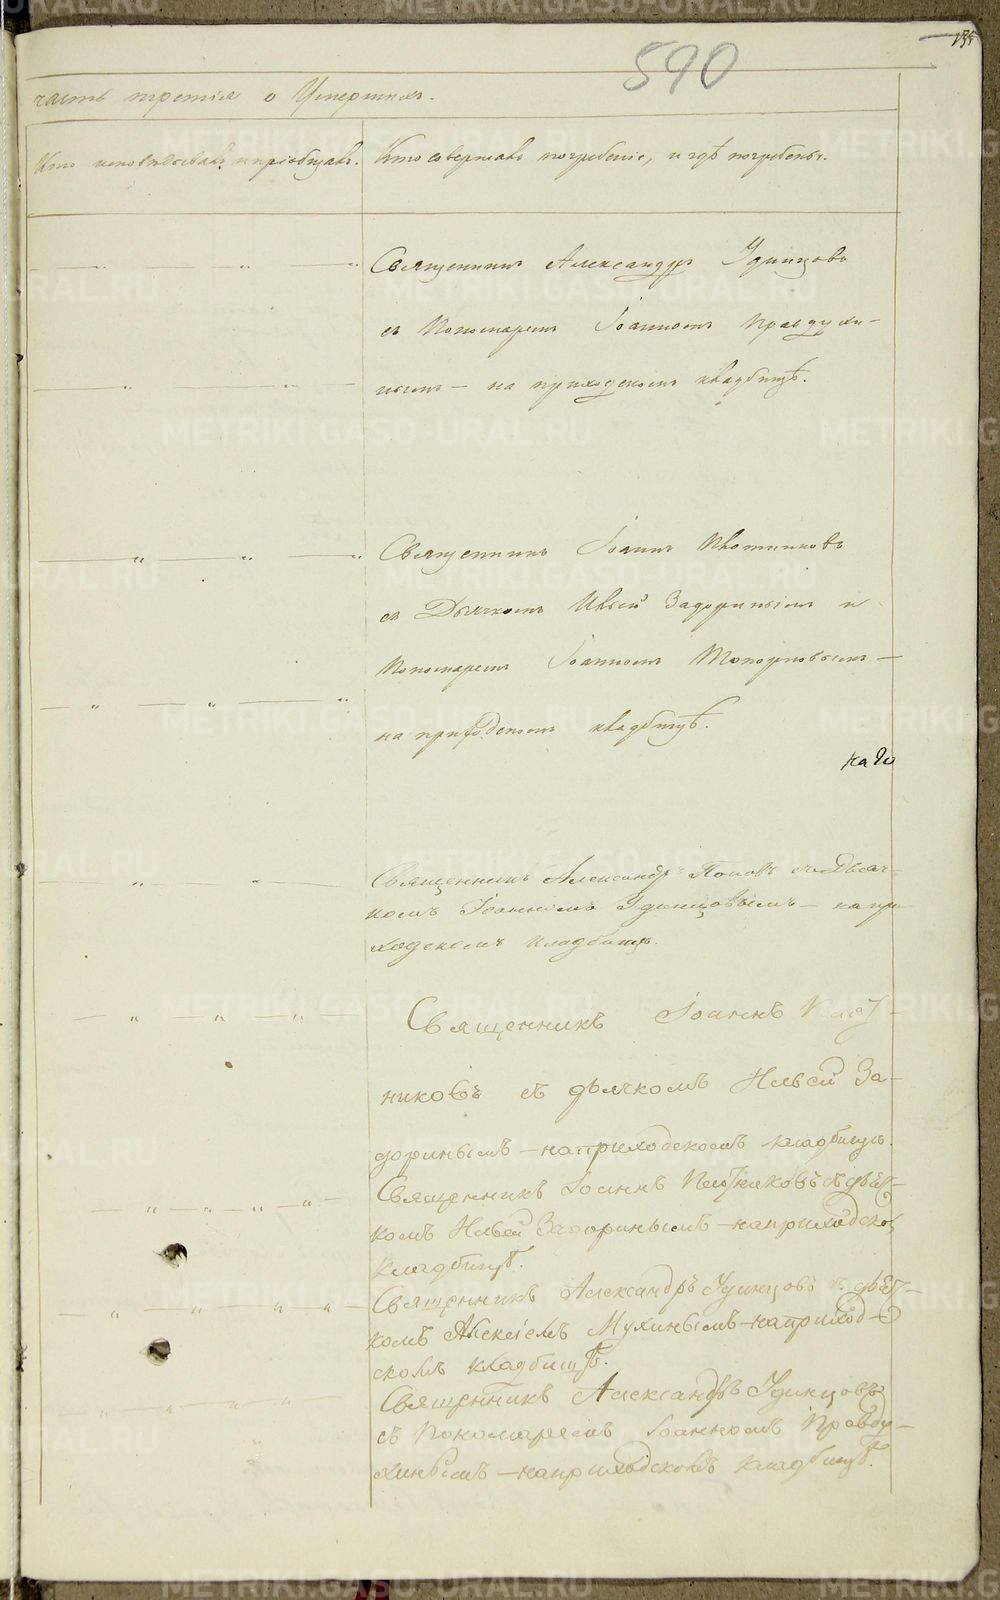 590
часть третія о Умершихъ.
Кто исповѣдывалъ и пріобщалъ.
Кто совершалъ погребеніе, и гдѣ погребены.
Священникъ Александръ Удинцовъ
съ Пономаремъ Іоанномъ Правдухи-
нымъ — на приходскомъ кладбищѣ.
Священникъ Іоаннъ Плотниковъ
съ Дьячкомъ Ильей Задоринымъ и
Пономаремъ Іоанномъ Топорковымъ —
на приходскомъ кладбищѣ.
Священникъ Александръ Поповъ съ Дьяч-
комъ Іоанномъ Удинцовымъ — на при-
ходскомъ кладбищѣ.
Священникъ Іоаннъ Плот-
никовъ съ дьячкомъ Ильей За-
доринымъ — на приходскомъ кладбищѣ.
Священникъ Іоаннъ Плотниковъ съ дьяч-
комъ Ильей Задоринымъ — на приходско
кладбищѣ.
Священникъ Александръ Удинцовъ съ дьяч-
комъ Алексіемъ Мухинымъ — на приход-
скомъ кладбищѣ.
Священникъ Александръ Удинцовъ
съ Пономаремъ Іоанномъ Правду-
хинымъ — на приходскомъ кладбищѣ.
METRIKI.GASO-URAL.RU